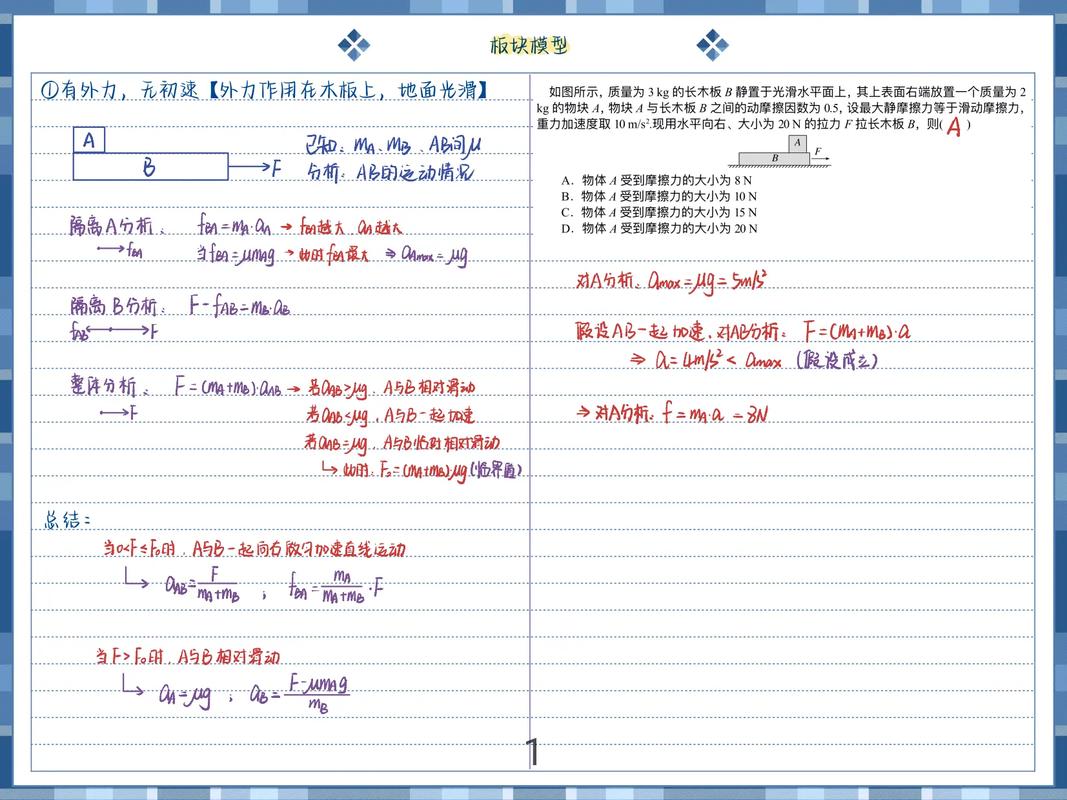 板块模型
①有外力，无初速【外力作用在木板上，地面光滑】
A
B
F
已知：mA、mB、AB间μ
分析：AB的运动情况
隔离A分析： fBA=mA·aA → fBA越大 aA越大
fBA
当fBA=μmAg → 此时fBA最大 ⇒ aAmax=μg
隔离B分析： F-fAB=mB·aB
fAB F
整体分析： F=(mA+mB)·aAB → 若aAB>μg，A与B相对滑动
F
若aAB<μg，A与B一起加速
若aAB=μg，A与B临时相对滑动
此时：F₀=(mA+mB)μg(临界值)
总结：
当0<F≤F₀时，A与B一起向右做匀加速直线运动
aAB=F/(mA+mB) ； fBA=mA/(mA+mB)·F
当F>F₀时，A与B相对滑动
aA=μg ； aB=(F-μmAg)/mB
如图所示，质量为 3 kg 的长木板 B 静置于光滑水平面上，其上表面右端放置一个质量为 2
kg 的物块 A，物块 A 与长木板 B 之间的动摩擦因数为 0.5，设最大静摩擦力等于滑动摩擦力，
重力加速度取 10 m/s².现用水平向右、大小为 20 N 的拉力 F 拉长木板 B，则( A )
A
B
F
A．物体 A 受到摩擦力的大小为 8 N
B．物体 A 受到摩擦力的大小为 10 N
C．物体 A 受到摩擦力的大小为 15 N
D．物体 A 受到摩擦力的大小为 20 N
对A分析：amax=μg=5m/s²
假设AB一起加速，对AB分析： F=(mA+mB)·a
⇒ a=4m/s²< amax (假设成立)
⇒ 对A分析：f=mA·a =8N
1